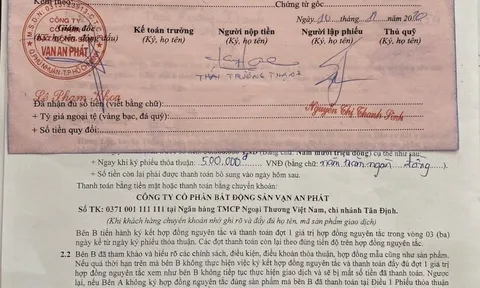 Kèm theo: Chứng từ gốc
Ngày 10 tháng 11 năm 2020
Giám đốc Kế toán trưởng Người nộp tiền Người lập phiếu Thủ quỹ
(Ký, họ tên, đóng dấu) (Ký, họ tên) (Ký, họ tên) (Ký, họ tên) (Ký, họ tên)
CÔNG TY
CỔ PHẦN
VẠN AN PHÁT
Q.PHÚ NHUẬN-T.P HỒ CHÍ
Lê Phạm Khoa
THÁI TRƯỜNG
Nguyễn Thị Thanh Bình
Đã nhận đủ số tiền (viết bằng chữ)
+ Tỷ giá ngoại tệ (vàng bạc, đá quý)
+ Số tiền quy đổi:
VNĐ (bằng chữ: Năm mươi triệu đồng) cụ thể như sau:
+ Ngày khi ký phiếu thỏa thuận: 500.000 VNĐ (bằng chữ: năm trăm ngàn đồng)
+ Số tiền còn lại phải được thanh toán bổ sung vào ngày hôm sau.
Thanh toán bằng tiền mặt hoặc thanh toán bằng chuyển khoản:
CÔNG TY CỔ PHẦN BẤT ĐỘNG SẢN VẠN AN PHÁT
Số TK: 0371 001 111 111 tại Ngân hàng TMCP Ngoại Thương Việt Nam, chi nhánh Tân Định.
(Khi khách hàng chuyển khoản nhớ ghi rõ và đầy đủ họ tên, mã sản phẩm giao dịch)
Bên B tiến hành ký kết hợp đồng nguyên tắc và thanh toán đợt 1 giá trị hợp đồng nguyên tắc trong vòng 03 (ba)
ngày kể từ ngày ký phiếu thỏa thuận. Các đợt thanh toán còn lại theo đúng tiến độ trên hợp đồng nguyên tắc.
2.2 Bên B đã tham khảo và hiểu rõ các chính sách, điều kiện, điều khoản thỏa thuận, hợp đồng mẫu cũng như sản phẩm.
Nếu quá thời hạn trên mà bên B không thực hiện việc ký kết hợp đồng nguyên tắc và thanh toán đầy đủ đợt 1 giá trị
hợp đồng nguyên tắc xem như bên B không tiếp tục thực hiện giao dịch và sẽ bị mất số tiền đã thanh toán. Ngược
lại, nếu Bên A không ký hợp đồng nguyên tắc đúng sản phẩm mà bên B đã thanh toán tại Điều 1 Phiếu thỏa